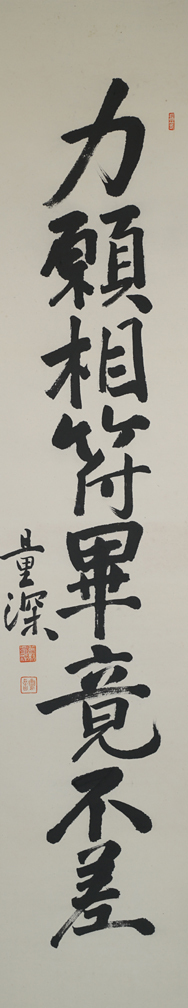 力願相符畢竟不差
量深